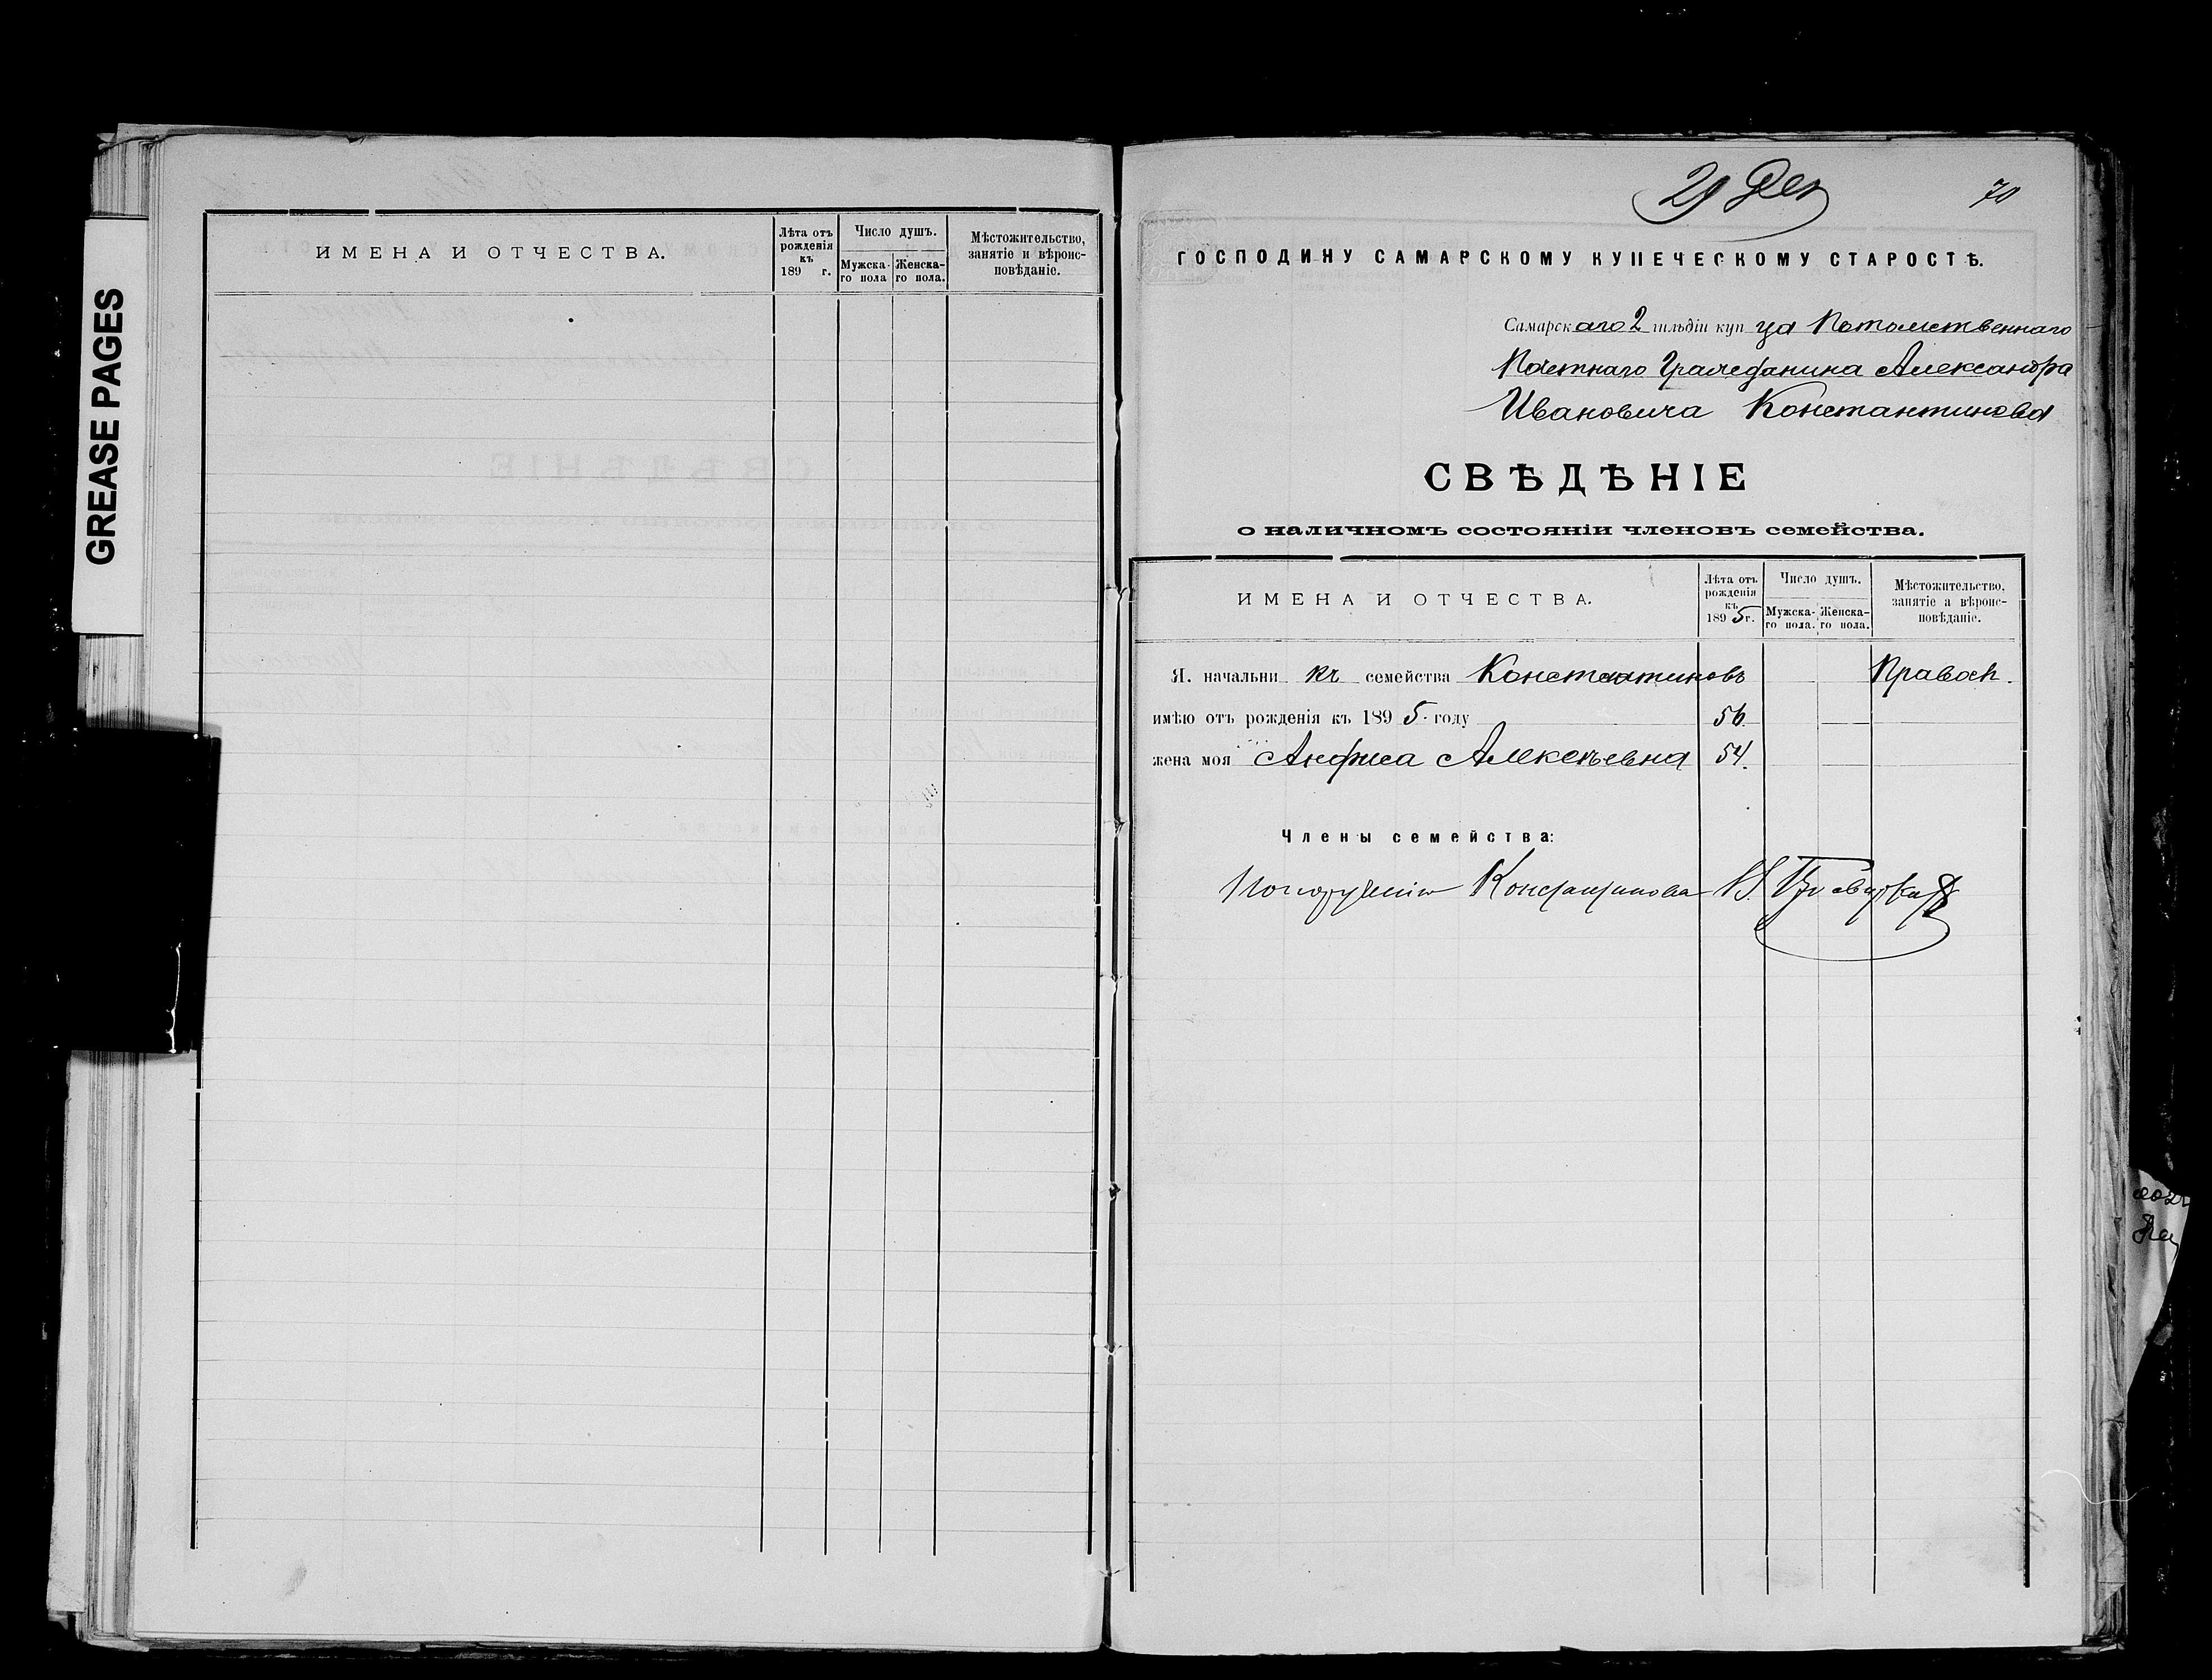 GREASE PAGES
ИМЕНА И ОТЧЕСТВА.
Лѣта отъ рожденія къ 189 г.
Число душъ.
Мужска-го пола
Женска-го пола.
Мѣстожительство, занятіе и вѣроис-повѣданіе.
29 Дек
70
ГОСПОДИНУ САМАРСКОМУ КУПЕЧЕСКОМУ СТАРОСТѢ.
Самарскаго 2 гильдіи купца Потомственнаго
Почетнаго Гражданина Александра
Ивановича Константинова
СВѢДѢНІЕ
о наличномъ состояніи членовъ семейства.
ИМЕНА И ОТЧЕСТВА.
Лѣта отъ рожденія къ 1895 г.
Число душъ.
Мужска-го пола.
Женска-го пола.
Мѣстожительство, занятіе и вѣроис-повѣданіе.
Я. начальникъ семейства Константиновъ Правосл.
имѣю отъ рожденія къ 1895 году 56.
жена моя Анфиса Алексѣевна 54.
Члены семейства:
Константинова